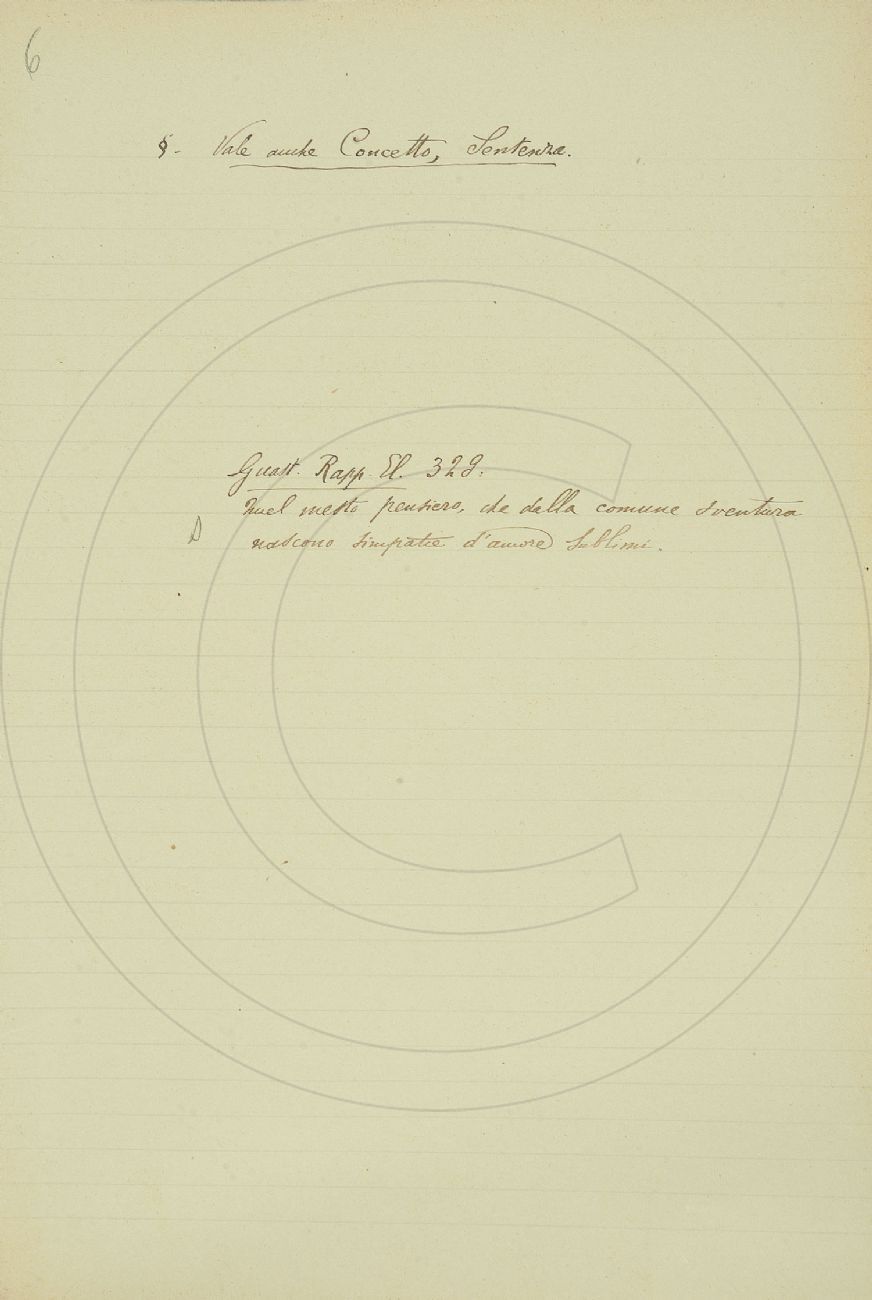 6
§. Vale anche Concetto, Sentenza.
Guast. Rapp. El. 329:
Quel mesto pensiero, che dalla comune sventura
nascono simpatie d'amore sublimi.